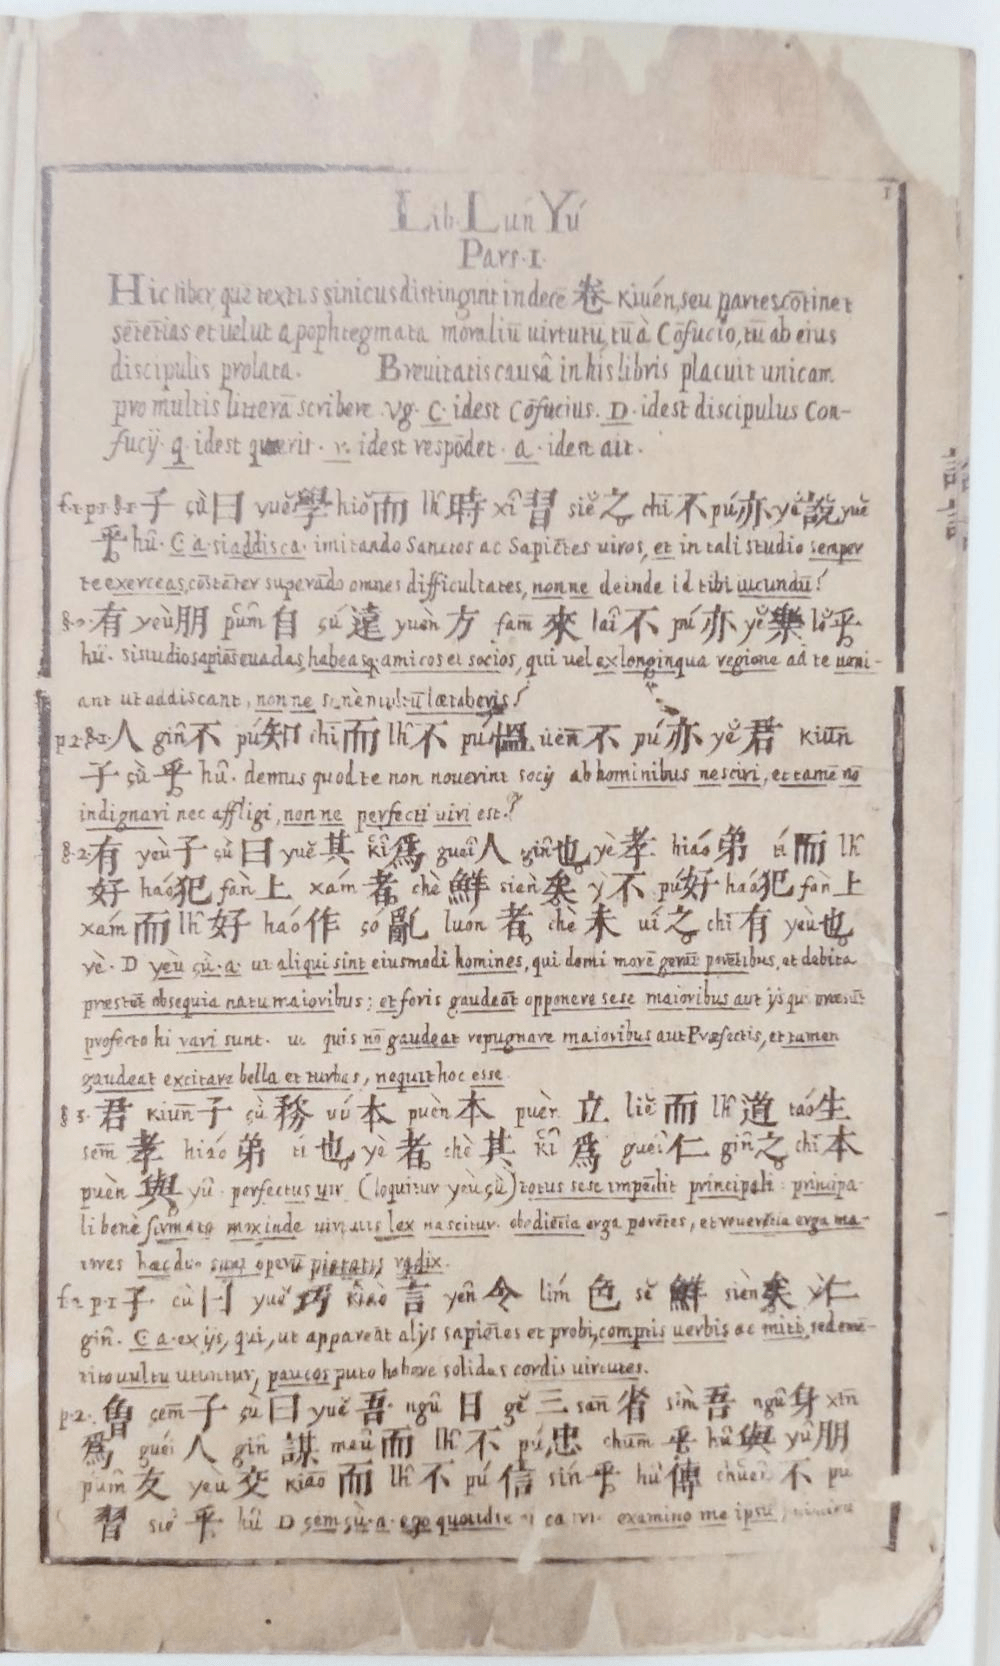 1
Lib. Lun Yu
Pars. 1.
Hic liber, quē textus sinicus distinguit in decē 卷 Kiuén, seu partes, cōtinet
sētētias et uelut apophtegmata moraliū uirtutū, tū à Cōfucio, tū ab eius
discipulis prolata. Breuitatis causâ in his libris placuit unicam
pro multis litterā scribere. vg. C. idest Cōfucius. D. idest discipulus Con-
fucij. q. idest quærit. r. idest respōdet. a. idest ait.
f.1. p.1. §.1. 子 çù 曰 yuĕ 學 hiŏ 而 lh̑ 時 xî 習 siĕ 之 chī 不 pú 亦 yĕ 說 yuĕ
乎 hû. C. a. si addisca. imitando Sanctos ac Sapiētes uiros, et in tali studio semper
te exerceas, cōstāter superādo omnes difficultates, nonne deinde id tibi iucundū?
§.2. 有 yeù 朋 pûm 自 çú 遠 yuèn 方 fam̄ 來 laî 不 pú 亦 yĕ 樂 lŏ 乎
hû. si studio sapiēs euadas, habeasq. amicos et socios, qui uel ex longinqua regione ad te ueni-
ant ut addiscant, nonne lætaberis?
p.2. §.1. 人 gin̂ 不 pú 知 chī 而 lh̑ 不 pú 慍 úen̄ 不 pú 亦 yĕ 君 Kiun̄
子 çù 乎 hû. demus quod te non nouerint socij ab hominibus nesciri, et tamē nō
indignari nec affligi, nonne perfecti uiri est?
§.2. 有 yeù 子 çù 曰 yuĕ 其 kî 爲 gueî 人 gin̂ 也 yè 孝 hiáo 弟 tí 而 lh̑
好 haó 犯 fàn 上 xám 者 chè 鮮 sièn 矣 ỳ 不 pú 好 haó 犯 fàn 上
xám 而 lh̑ 好 haó 作 só 亂 luón 者 chè 未 uí 之 chī 有 yeù 也
yè. D yeù çù. a. ut aliqui sint eiusmodi homines, qui domi morē gerāt parētibus, et debita
præstēt obsequia natu maioribus; et foris gaudeāt opponere sese maioribus aut ijs qui præsūt
profecto hi rari sunt. ut quis nō gaudeat repugnare maioribus aut Præfectis, et tamen
gaudeat excitare bella et turbas, nequit hoc esse.
§.3. 君 Kiun̄ 子 çù 務 uú 本 puèn 本 puèn 立 liĕ 而 lh̑ 道 táo 生
sem̄ 孝 hiáo 弟 tí 也 yè 者 chè 其 kî 爲 gueî 仁 gin̂ 之 chī 本
puèn 與 yû. perfectus uir (loquitur yeù çù) totus sese impēdit principali: principa-
li benè firmato moxinde uirtutis lex nascitur. obediētia erga parētes, et reuerētia erga ma-
iores hæc duo sunt operū pietatis radix.
f.2. p.1. 子 çù 曰 yuĕ 巧 Kiào 言 yên 令 lím 色 sĕ 鮮 sièn 矣 ỳ 仁
gin̂. C. a. ex ijs, qui, ut appareāt alijs sapiētes et probi, comptis uerbis ac miti, sed
uultu utuntur, paucos puto habere solidas cordis uirtutes.
p.2. 曾 çem̄ 子 çù 曰 yuĕ 吾 ngû 日 gĕ 三 san̄ 省 sìm 吾 ngû 身 xin̄
爲 guéi 人 gin̂ 謀 meû 而 lh̑ 不 pú 忠 chum̄ 乎 hû 與 yû 朋
pûm 友 yeù 交 Kiāo 而 lh̑ 不 pú 信 sín 乎 hû 傳 chûen 不 pú
習 siĕ 乎 hû D çem̄ çù. a. ego quotidie examino me ipsū